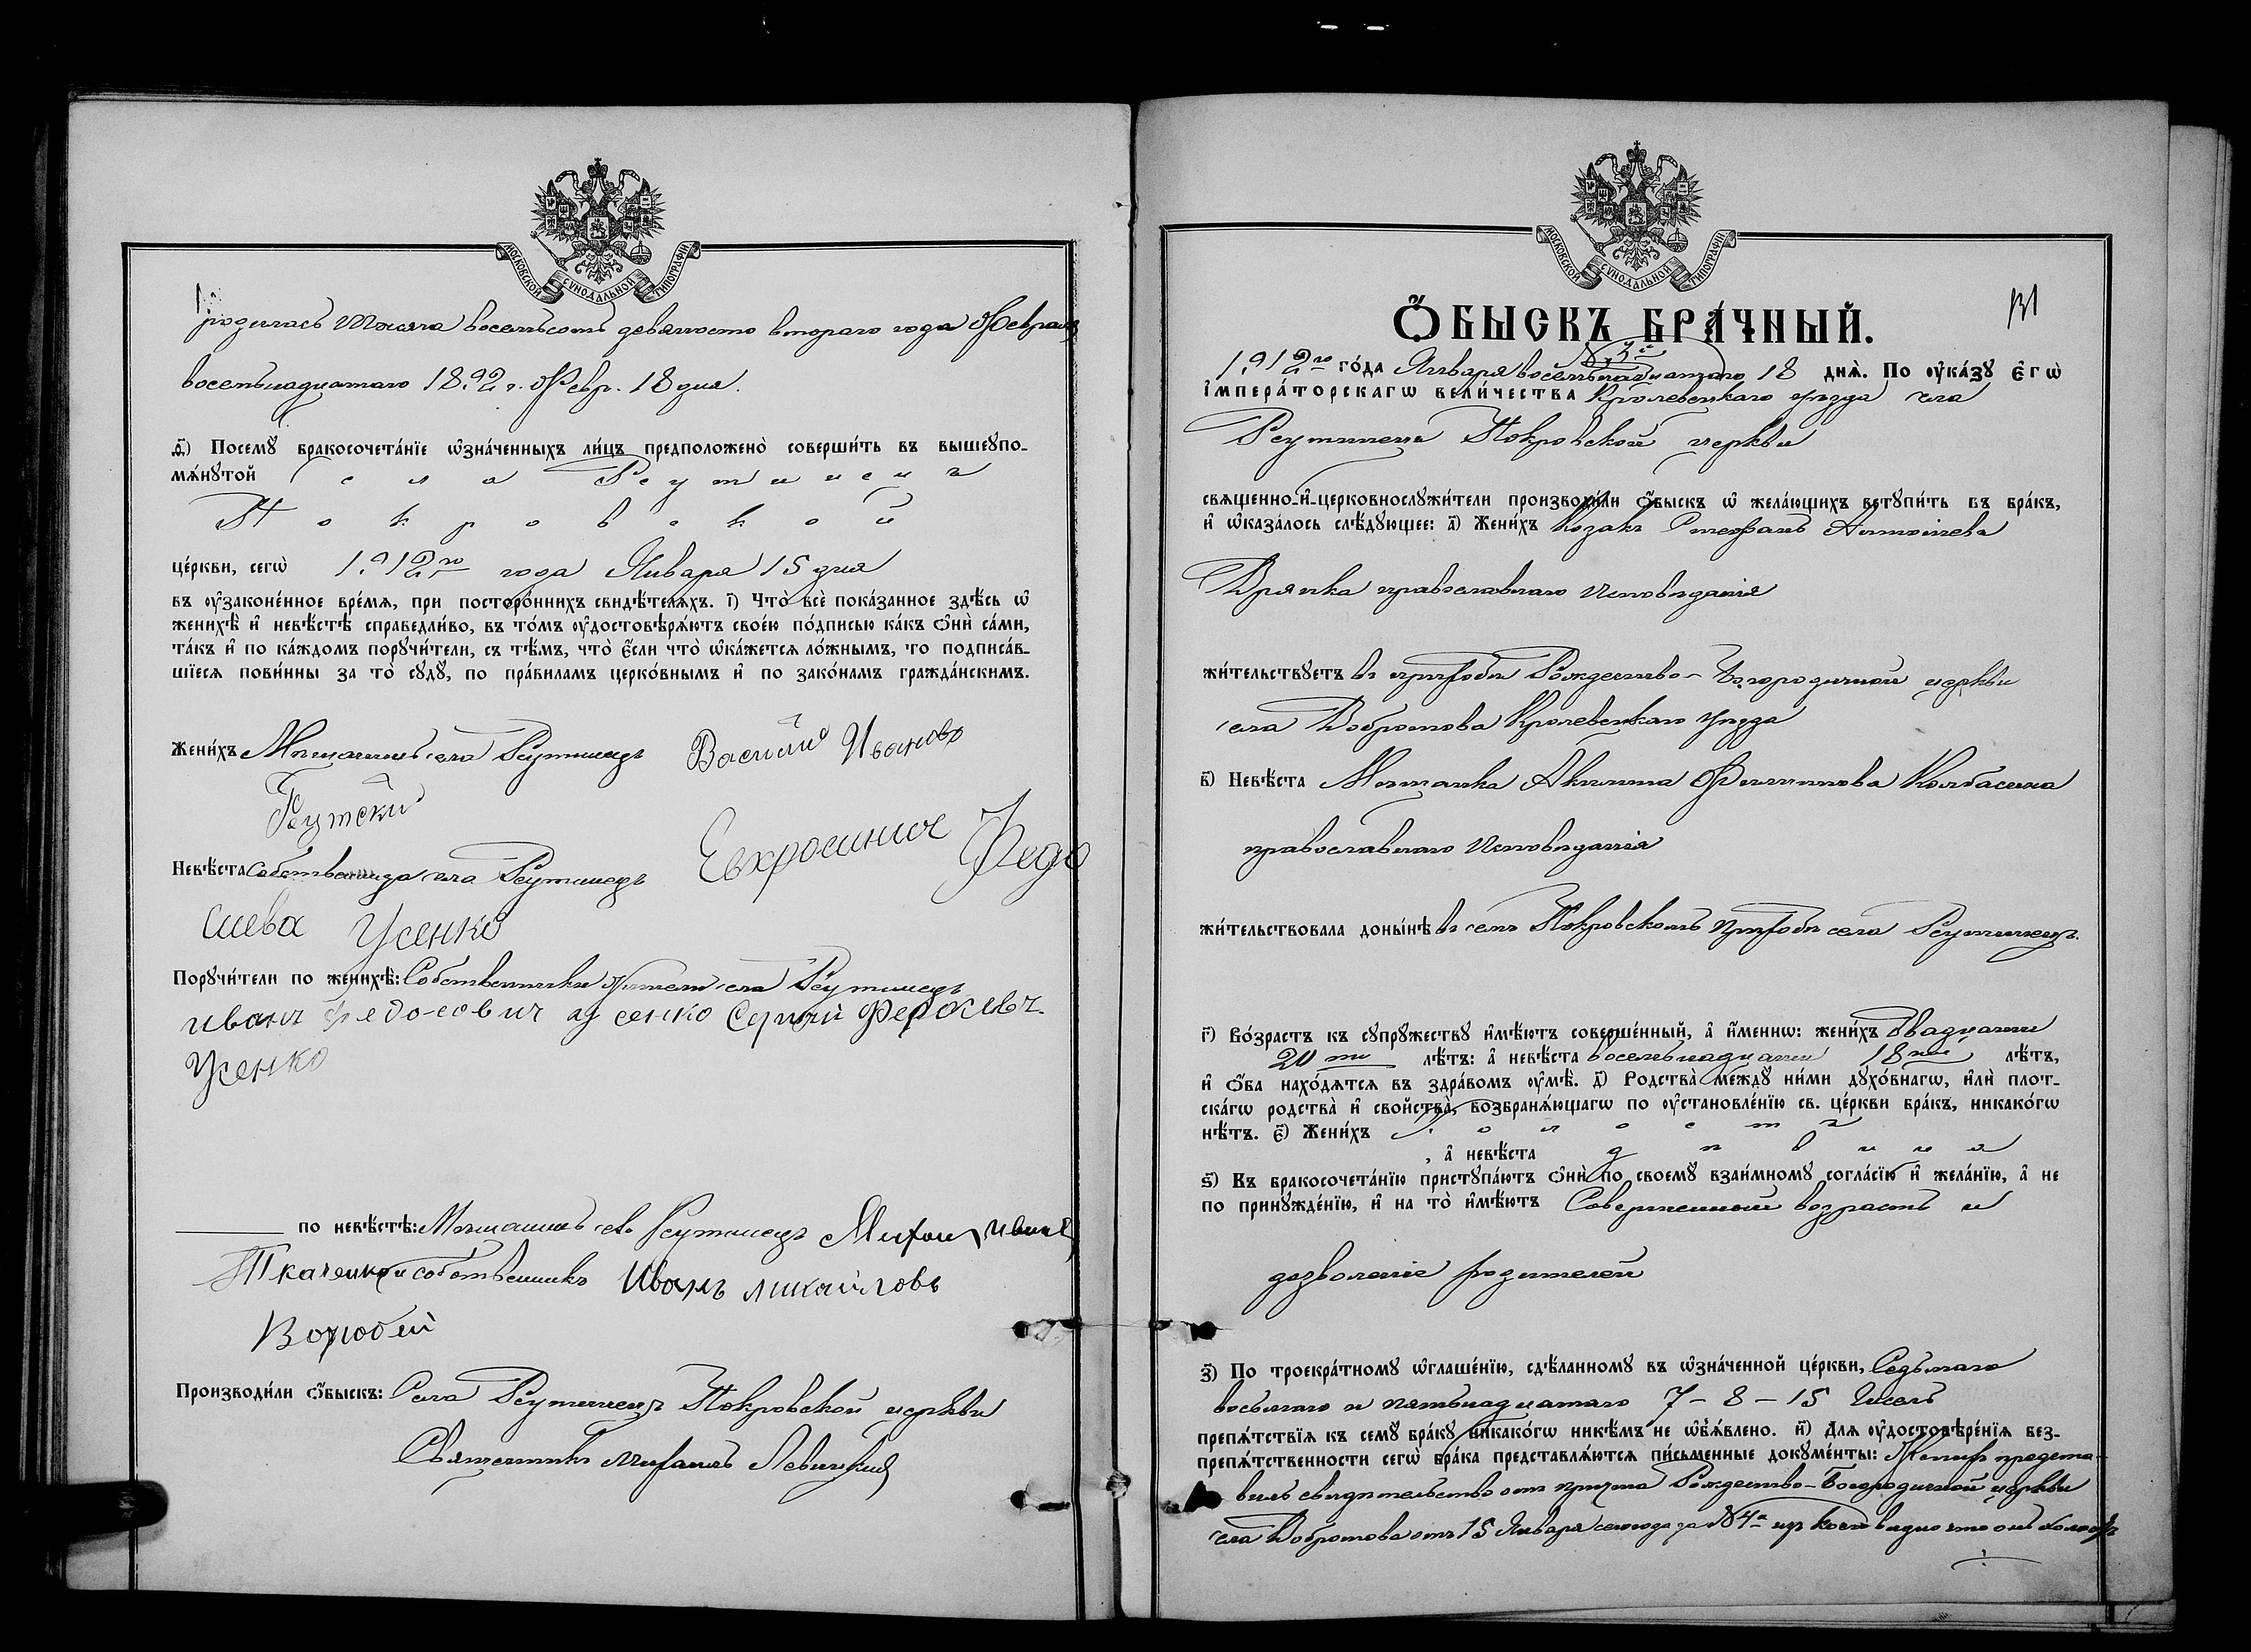 МОСКОВСКОЙ СѴНОДАЛЬНОЙ ТИПОГРАФІИ
родилась тысяча восемьсотъ девяносто второго года Февраля
восемьнадцатаго 1892 г. Февр. 18 дня.
д҃) Посемꙋ бракосочета́нїе ѡ҆зна́ченныхъ ли́цъ предположено̀ соверши́ть въ вышеꙋпо-
мѧ́нꙋтой села Реутинецъ
Покровской
це́ркви, сегѡ̀ 1912го года Января 15 дня
въ оу҆законе́нное вре́мѧ, при посторо́ннихъ свидѣ́телѧхъ. і҃) Что̀ всѐ пока́занное здѣ́сь ѡ҆
женихѣ̀ и҆ невѣ́стѣ справедли́во, въ то́мъ оу҆достовѣрѧ́ютъ свое́ю по́дписью ка́къ ѻ҆нѝ са́ми,
та́къ и҆ по ка́ждомъ порꙋчи́тели, съ тѣ́мъ, что̀ є҆́сли что̀ ѡ҆ка́жется ло́жнымъ, то подписа́в-
шїесѧ пови́нны за то̀ сꙋдꙋ̀, по пра́виламъ церко́внымъ и҆ по зако́намъ гражда́нскимъ.
Жени́хъ Мѣщанинъ села Реутинецъ Василий Иваново
Реутский
Невѣ́ста Собственница села Реутинецъ Евхросиния Федо
сиева Усенко
Порꙋчи́тели по женихѣ̀: Собственники села Реутинецъ
иванъ Федосович усенко Сергий Федосиевич.
Усенко
по невѣ́стѣ: Мѣщанинъ села Реутинецъ Михаил
Ткаченко и собственникъ Иванъ михайловъ
Воробей
Производи́ли ѻ҆́быскъ: Села Реутинецъ Покровской церкви
Священникъ Михаилъ Левицкій
МОСКОВСКОЙ СѴНОДАЛЬНОЙ ТИПОГРАФІИ
131
Ѻ҆́БЫСКЪ БРА́ЧНЫЙ.
№ 3й
1912го го́да Января восемьнадцатаго 18 днѧ̀. По оу҆ка́зꙋ є҆гѡ̀
і҆мпера́торскагѡ вели́чества Кролевецкаго уѣзда села
Реутинецъ Покровской церкви
свѧщенно-и҆-церковнослꙋжи́тели производи́ли ѻ҆́быскъ ѡ҆ жела́ющихъ встꙋпи́ть въ бра́къ,
и҆ ѡ҆каза́лось слѣ́дꙋющее: а҃) Жени́хъ Козакъ Стефанъ Антоніевъ
Дрянка православнаго исповѣданія
жи́тельствꙋетъ въ приходѣ Рождество-Богородичной церкви
села Добротова Кролевецкаго уѣзда
в҃) Невѣ́ста Мѣщанка Акилина Филиппова Колбасина
православнаго исповѣданія
жи́тельствовала доны́нѣ въ семъ Покровскомъ приходѣ села Реутинецъ.
г҃) Во́зрастъ къ сꙋпрꙋ́жествꙋ и҆мѣ́ютъ соверше́нный, а҆ и҆́менно: жени́хъ двадцати
20ти лѣ́тъ: а҆ невѣ́ста восемьнадцати 18ти лѣ́тъ,
и҆ ѻ҆́ба нахо́дѧтсѧ въ здра́вомъ оу҆мѣ̀. д҃) Родства̀ ме́ждꙋ ни́ми дꙋхо́внагѡ, и҆лѝ плот-
ска́гѡ родства̀ и҆ свойства̀, возбранѧ́ющагѡ по оу҆становле́нїю св. це́ркви бра́къ, никако́гѡ
нѣ́тъ. є҃) Жени́хъ холостъ
, а҆ невѣ́ста дѣвица
ѕ҃) Къ бракосочета́нїю пристꙋпа́ютъ ѻ҆нѝ по своемꙋ̀ взаи́мномꙋ согла́сїю и҆ жела́нїю, а҆ не
по принꙋжде́нїю, и҆ на то̀ и҆мѣ́ютъ Совершенный возрастъ и
дозволеніе родителей
з҃) По троекра́тномꙋ ѡ҆глаше́нїю, сдѣ́ланномꙋ въ ѡ҆зна́ченной це́ркви, Седьмаго
восьмаго и пятьнадцатаго 7 - 8 - 15 чиселъ
препѧ́тствїѧ къ семꙋ̀ бра́кꙋ никако́гѡ никѣ́мъ не ѡ҆б̾ѧ́влено. и҃) Длѧ оу҆достовѣре́нїѧ без-
препѧ́тственности сегѡ̀ бра́ка представлѧ́ютсѧ пи́сьменные докꙋме́нты: Женихъ предста-
вилъ свидѣтельство отъ причта Рождество-Богородичной церкви
села Добротова отъ 15 Января сего года за № 4м изъ коего видно что онъ холостъ